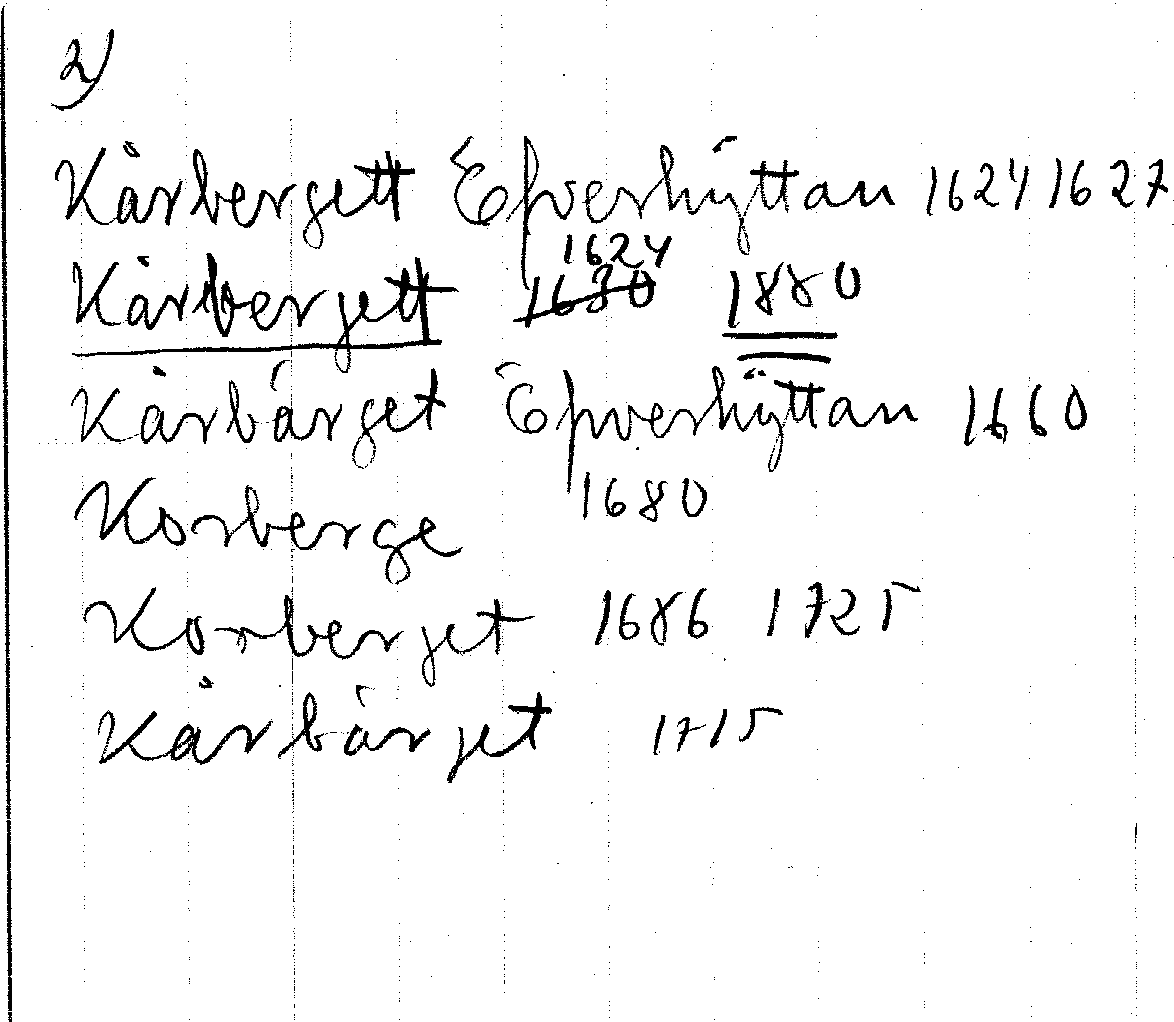 2)
Kårbergett Öfverhÿttan 1624 1627
1624
Kårbergett 1630 1880
Kårbärget Öfverhÿttan 1660
Korberge 1680
Korberget 1686 1725
Kårbärjet 1715